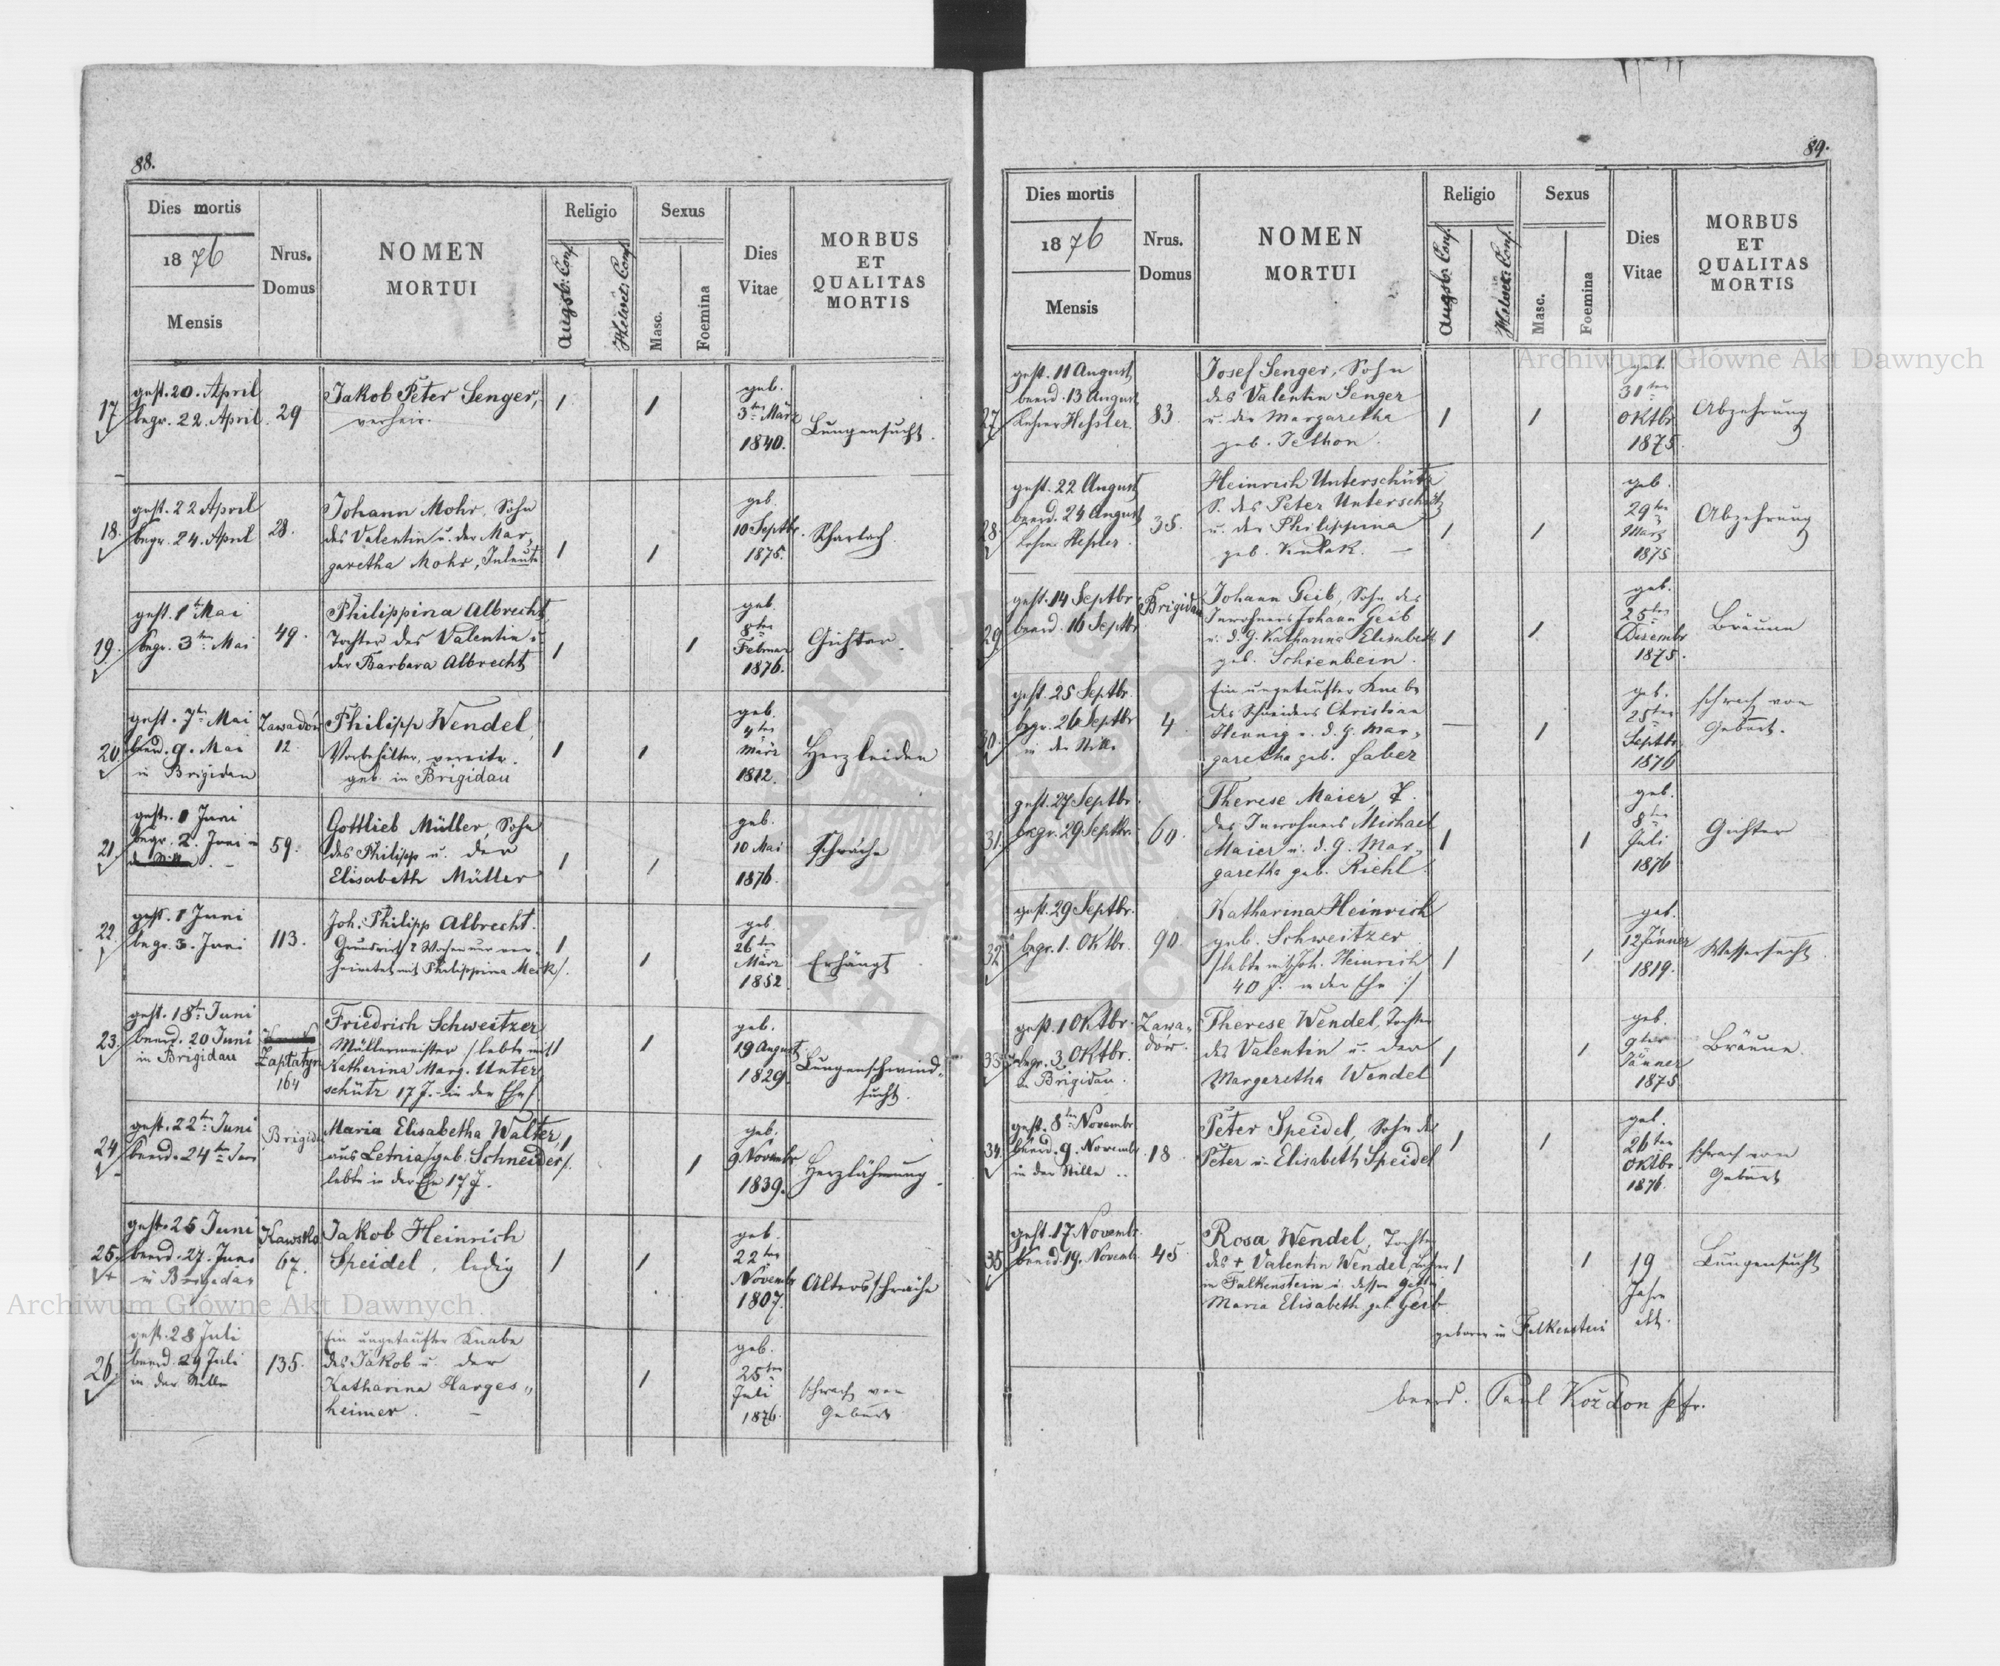 88.
Dies mortis
1876
Mensis
Nrus. Domus
NOMEN MORTUI
Religio
Augsb. Conf.
Helvet. Conf.
Sexus
Masc.
Foemina
Dies Vitae
MORBUS ET QUALITAS MORTIS
17
gest. 20. April
begr. 22. April
29
Jakob Peter Senger,
verheir.
1
1
geb.
3ten März
1840.
Lungensucht.
18.
gest. 22 April
begr. 24. April
28.
Johann Mohr, Sohn
des Valentin u. der Mar„
garetha Mohr, Inleute
1
1
geb.
10 Septbr.
1875.
Scharlach.
19.
gest. 1ten Mai
begr. 3ten Mai
49.
Philippina Albrecht,
Tochter des Valentin u.
der Barbara Albrecht
1
1
geb.
8ten
Februar
1876.
Gichter.
20
gest. 7ten Mai
beerd. 9. Mai
in Brigidau
Zawadow
12.
Philipp Wendel,
geb. in Brigidau
1
1
geb.
4ten
März
1812.
Herzleiden
21
gest. 1 Juni
begr. 2. Juni in
d. Stille
59.
Gottlieb Müller, Sohn
des Philipp u. der
Elisabeth Müller
1
1
geb.
10 Mai
1876.
Schwäche
22.
gest. 1 Juni
begr. 3. Juni
113.
Joh. Philipp Albrecht.
Grundwirth 2 Wochen nur ver„
heiratet mit Philippina Merk/.
1
1
geb.
26ten
März
1852
Erhängt
23
gest. 18ten Juni
beerd. 20 Juni
in Brigidau
Zaptatyn
164
Friedrich Schweitzer
Müllermeister /lebte mit
Katharina Marg. Unter
schütz 17 J. in der Ehe/
1
1
geb.
19 August
1829.
Lungenschwind„
sucht.
24
gest. 22ten Juni
beerd. 24ten Juni
Brigidau
Maria Elisabetha Walter,
aus Letnia/geb. Schneider/.
lebte in der Ehe 17 J.
1
1
geb.
9 Novembr
1839.
Herzlähmung.
25.
gest. 25 Juni
beerd. 27. Juni
in Brigidau
Kawsko
67.
Jakob Heinrich
Speidel, ledig
1
1
geb.
22ten
Novembr
1807.
Altersschwäche
26
gest. 28 Juli
beerd. 29 Juli
in der Stille
135.
Ein ungetaufter Knabe
des Jakob u. der
Katharina Harges„
heimer. —
1
geb.
25ten
Juli
1876.
schwach von
Geburt
89.
Dies mortis
1876
Mensis
Nrus. Domus
NOMEN MORTUI
Religio
Augsb. Conf.
Helvet. Conf.
Sexus
Masc.
Foemina
Dies Vitae
MORBUS ET QUALITAS MORTIS
27
gest. 11 August
beerd. 13 August
Lehrer Hessler.
83
Josef Senger, Sohn
des Valentin Senger
u. der Margaretha
geb. Jethon.
1
1
geb.
31ten
Oktbr
1875.
Abzehrung
28
gest. 22 August
beerd. 24 August
Lehrer Hessler.
35.
Heinrich Unterschütz
S. des Peter Unterschütz
u. der Philippina
geb. —
1
1
geb.
29ten
März
1875
Abzehrung
29
gest. 14 Septbr.
beerd. 16 Septbr
Brigidau
Johann Geib, Sohn des
Inwohners Johann Geib
u. d. G. Katharina Elisabeth
geb. Schienbein.
1
1.
geb.
25ten
Dezembr
1875.
Bräune
30
gest. 25 Septbr.
begr. 26 Septbr
in der Stille
4
Ein ungetaufter Knabe
des Schneiders Christian
Hennig u. d. G. Mar„
garetha geb. Faber
—
1
geb.
25ten
Septbr.
1876
schwach von
Geburt.
31
gest. 27 Septbr.
begr. 29 Septbr.
60.
Therese Maier, T.
des Inwohners Michael
Maier u. d. G. Mar„
garetha geb. Riehl.
1
1
geb.
8ten
Juli
1876
Gichter
32
gest. 29 Septbr.
begr. 1. Oktbr.
90
Katharina Heinrich
geb. Schweitzer
/lebte mit Joh. Heinrich
40 J. in der Ehe :/
1
1
geb.
12 Jänner
1819.
Wassersucht.
33
gest. 1 Oktbr.
begr. 3 Oktbr.
in Brigidau.
Zawa„
dow.
Therese Wendel, Tochter
des Valentin u. der
Margaretha Wendel
1
1
geb.
9ten
Jänner
1875
Bräune.
34
gest. 8ten Novembr.
beerd. 9. Novembr
in der Stille ..
18
Peter Speidel, Sohn des
Peter u. Elisabeth Speidel
1
1
geb.
26ten
Oktbr.
1876.
schwach von
Geburt
35
gest. 17 Novembr.
beerd. 19. Novembr.
45
Rosa Wendel, Tochter
des + Valentin Wendel, Lehrer
in Falkenstein u. dessen Gattin
Maria Elisabeth geb. Geib.
geboren in Falkenstein
1
1
19
Jahre
alt.
Lungensucht
beerd. Paul Kozdon Pfr.
Archiwum Główne Akt Dawnych
Archiwum Główne Akt Dawnych